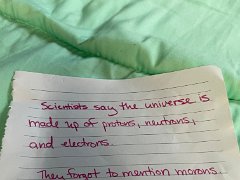 Scientists say the universe is
made up of protons, neutrons,
and electrons.
They forgot to mention morons.